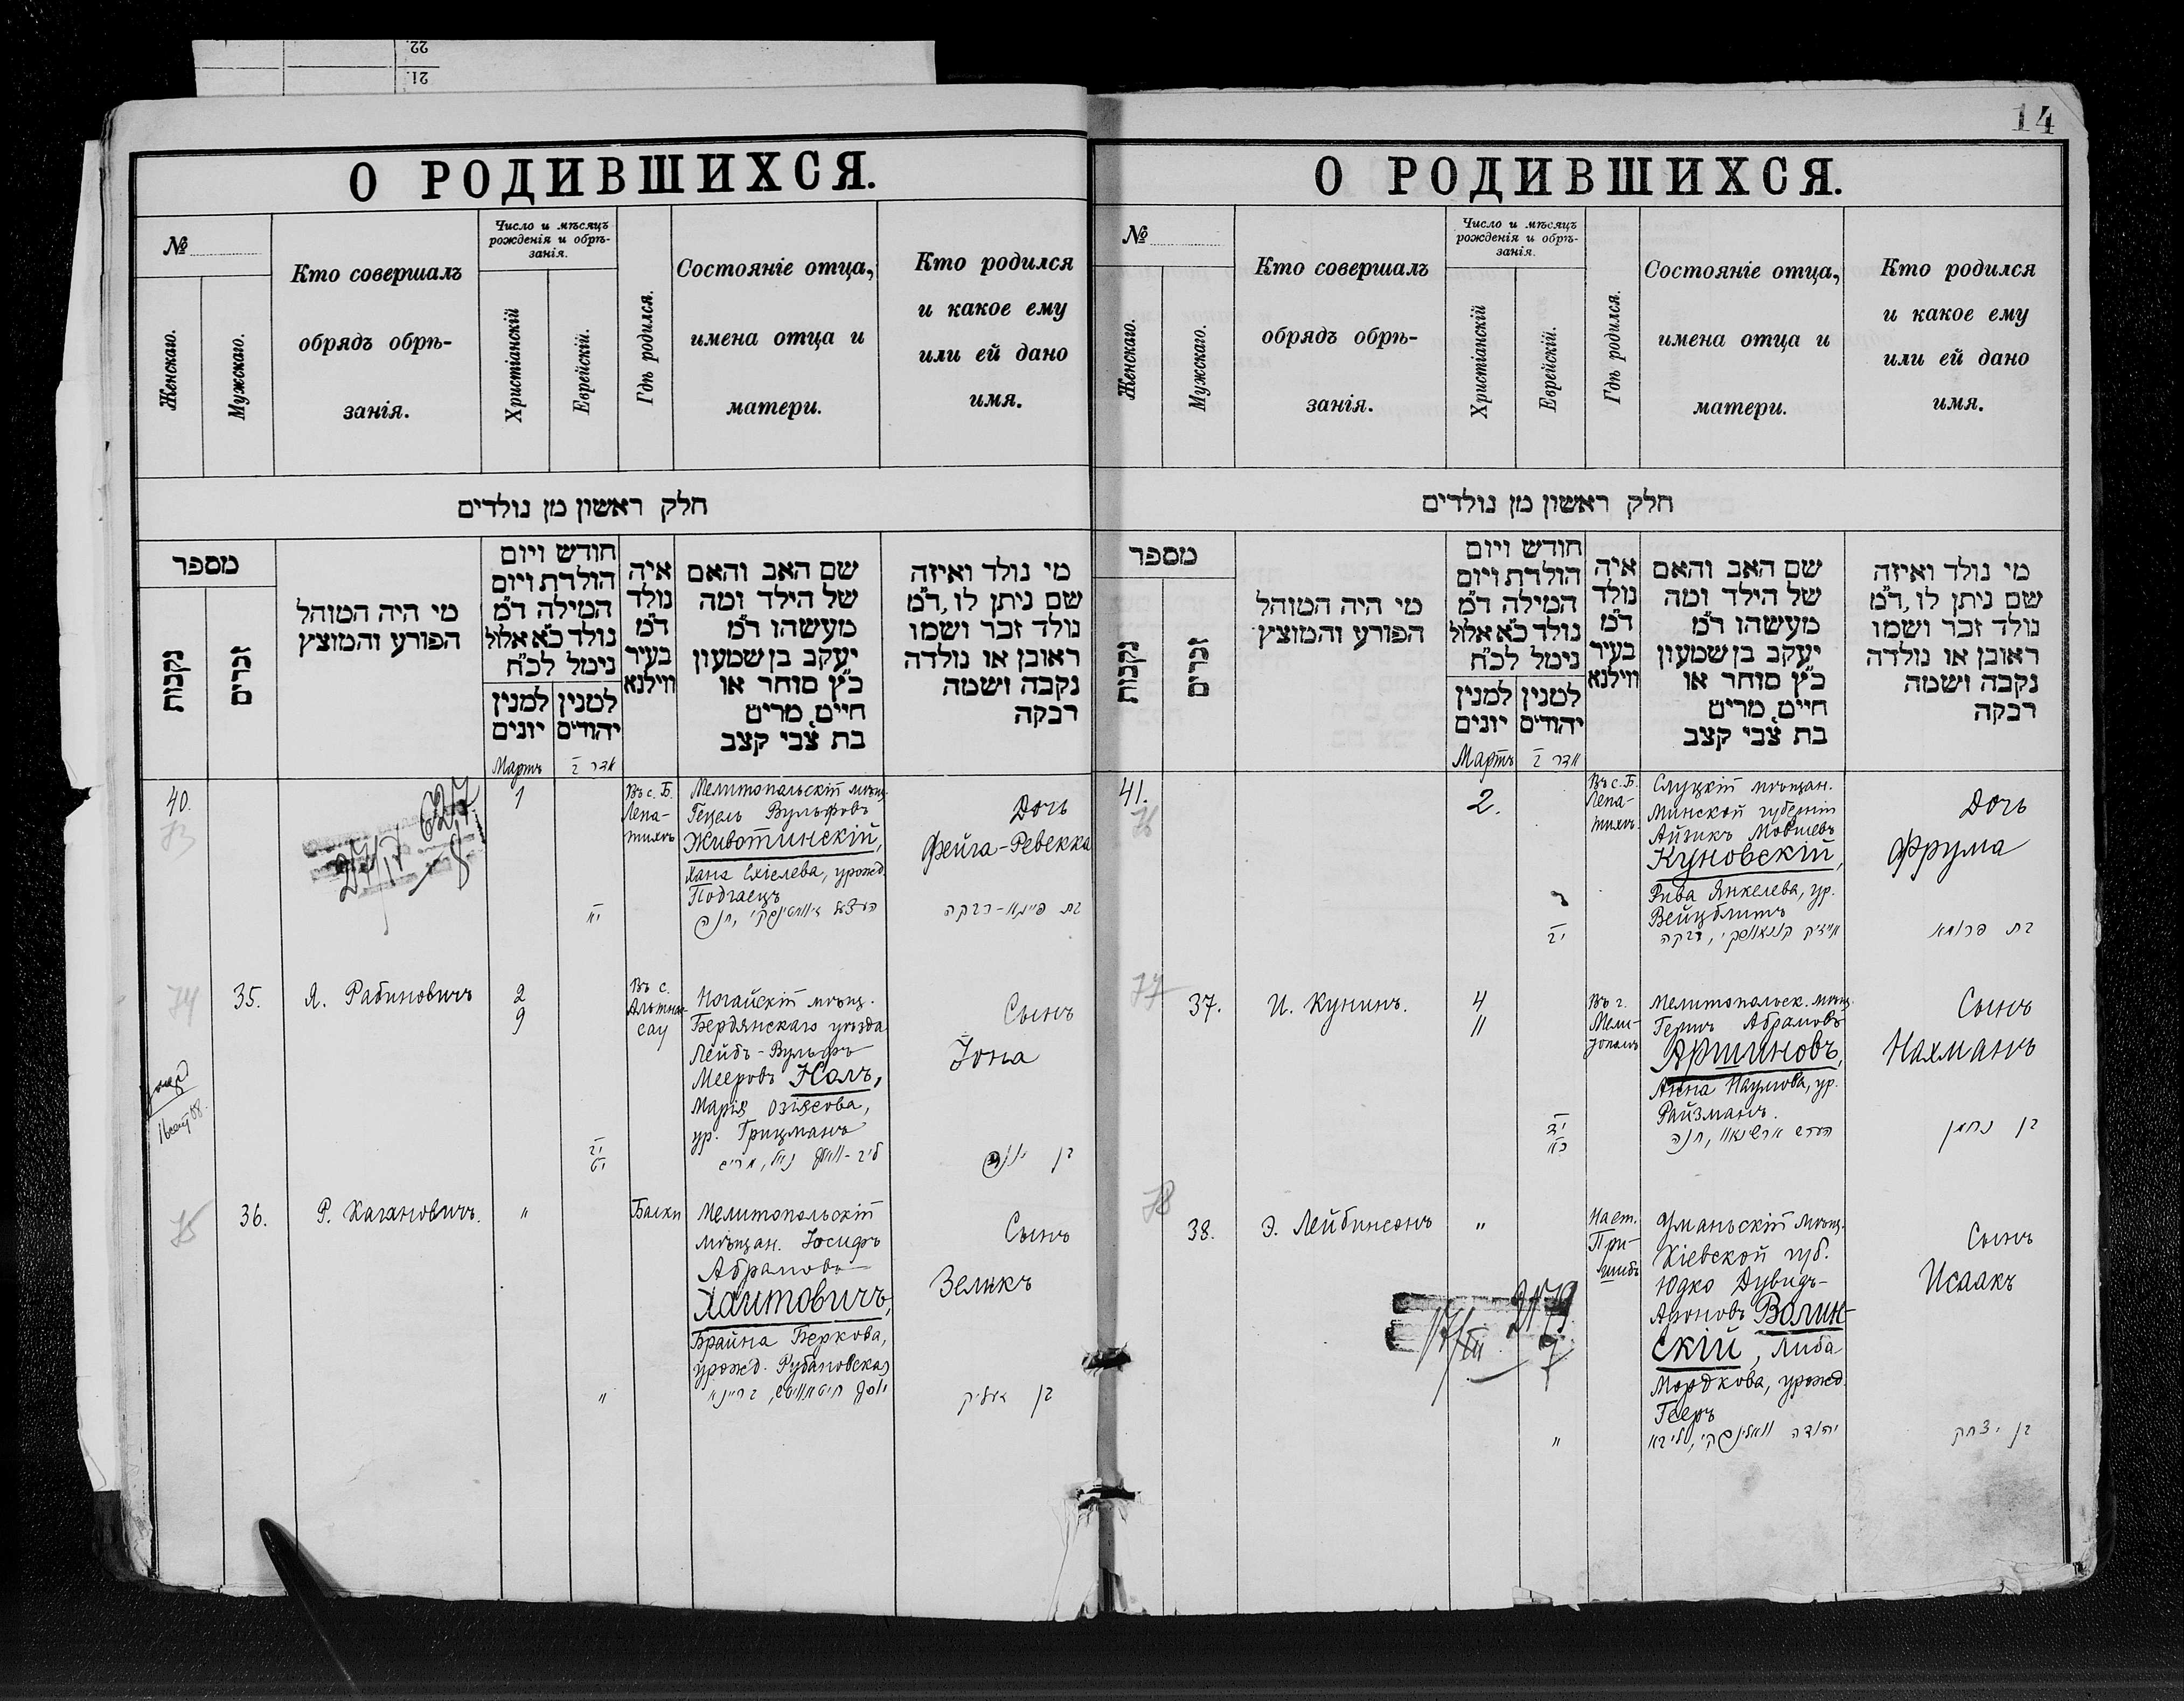 22.
21.
О РОДИВШИХСЯ.
№
Женскаго.
Мужскаго.
Кто совершалъ
обрядъ обрѣ-
занія.
Число и мѣсяцъ
рожденія и обрѣ-
занія.
Христіанскій
Еврейскій.
Гдѣ родился.
Состояніе отца,
имена отца и
матери.
Кто родился
и какое ему
или ей дано
имя.
חלק ראשון מן נולדים
מספר
נקבות
זכרים
מי היה המוהל
הפורע והמוצץ
חודש ויום
הולדת ויום
המילה ד"מ
נולד כ"א אלול
נימל לכ"ח
למנין יונים
למנין יהודים
איה
נולד
ד"מ
בעיר
ווילנא
שם האב והאם
של הילד ומה
מעשהו ד"מ
יעקב בן שמעון
כ"ץ סוחר או
חיים, מרים
בת צבי קצב
מי נולד ואיזה
שם ניתן לו, ד"מ
נולד זכר ושמו
ראובן או נולדה
נקבה ושמה
רבקה
Мартъ
אדר ב
40.
73
1
יא
Въ с. Б.
Лепа-
тихѣ
Мелитопольскій мѣщ.
Гецель Вульфовъ
Животинскій,
Хана Єхіелева, урожд.
Подгаецъ
Дочь
Фейга-Ревекка
בת פייגא-רבקה
74
35.
Я. Рабиновичъ
2
9
יב
יט
Въ с.
Альтна-
сау
Ногайскій мѣщ.
Бердянскаго уѣзда
Лейбъ-Вульфъ
Мееровъ Ноль,
Марія Озіясова,
ур. Грицманъ
Сынъ
Іона
בן יונה
75
36.
Р. Кагановичъ.
"
"
Балки
Мелитопольскій
мѣщан. Іосифъ
Абрамовъ
Хаитовичъ,
Брайна Беркова,
урожд. Рубановская
Сынъ
Зеликъ
בן זעליק
14
О РОДИВШИХСЯ.
№
Женскаго.
Мужскаго.
Кто совершалъ
обрядъ обрѣ-
занія.
Число и мѣсяцъ
рожденія и обрѣ-
занія.
Христіанскій
Еврейскій.
Гдѣ родился.
Состояніе отца,
имена отца и
матери.
Кто родился
и какое ему
или ей дано
имя.
חלק ראשון מן נולדים
מספר
נקבות
זכרים
מי היה המוהל
הפורע והמוצץ
חודש ויום
הולדת ויום
המילה ד"מ
נולד כ"א אלול
נימל לכ"ח
למנין יונים
למנין יהודים
איה
נולד
ד"מ
בעיר
ווילנא
שם האב והאם
של הילד ומה
מעשהו ד"מ
יעקב בן שמעון
כ"ץ סוחר או
חיים, מרים
בת צבי קצב
מי נולד ואיזה
שם ניתן לו, ד"מ
נולד זכר ושמו
ראובן או נולדה
נקבה ושמה
רבקה
Мартъ
אדר ב
41.
76
2.
יב
Въ с. Б.
Лепа-
тихѣ.
Слуцкій мѣщан.
Минской губерніи
Айзикъ Мовшевъ
Куновскій,
Рива Янкелева, ур.
Вейцблитъ
Дочь
Фрума
בת פרומא
77
37.
И. Кунинъ.
4
11
יד
כא
Въ г.
Мели-
тополѣ
Мелитопольск. мѣщ.
Гершъ Абрамовъ
Аршиновъ,
Анна Наумова, ур.
Райзманъ.
הירש ארשינאוו, חנה
Сынъ
Нахманъ
בן נחמן
78
38.
Э. Лейбинсонъ
"
"
На ст.
При-
шибъ
Уманьскій мѣщ.
Кіевской губ.
Юдко Дувидъ-
Ароновъ Волин-
скій, Либа
Мордкова, урожд.
Гееръ
יהודה וואלינסקי, ליבא
Сынъ
Исаакъ
בן יצחק